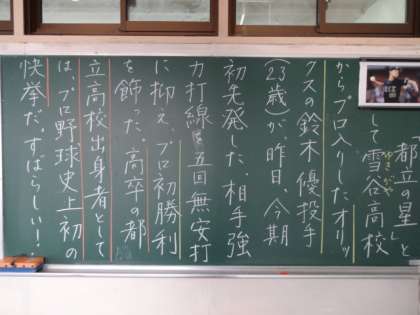 都立の星」と
して雪谷高校
ゆきがや
からプロ入りしたオリッ
クスの鈴木優投手
(23歳)が、昨日、今期
初先発した。相手強
力打線を五回無安打
に抑え、プロ初勝利
を飾った。高卒の都
立高校出身者として
は、プロ野球史上初の
快挙だ。すばらしい!